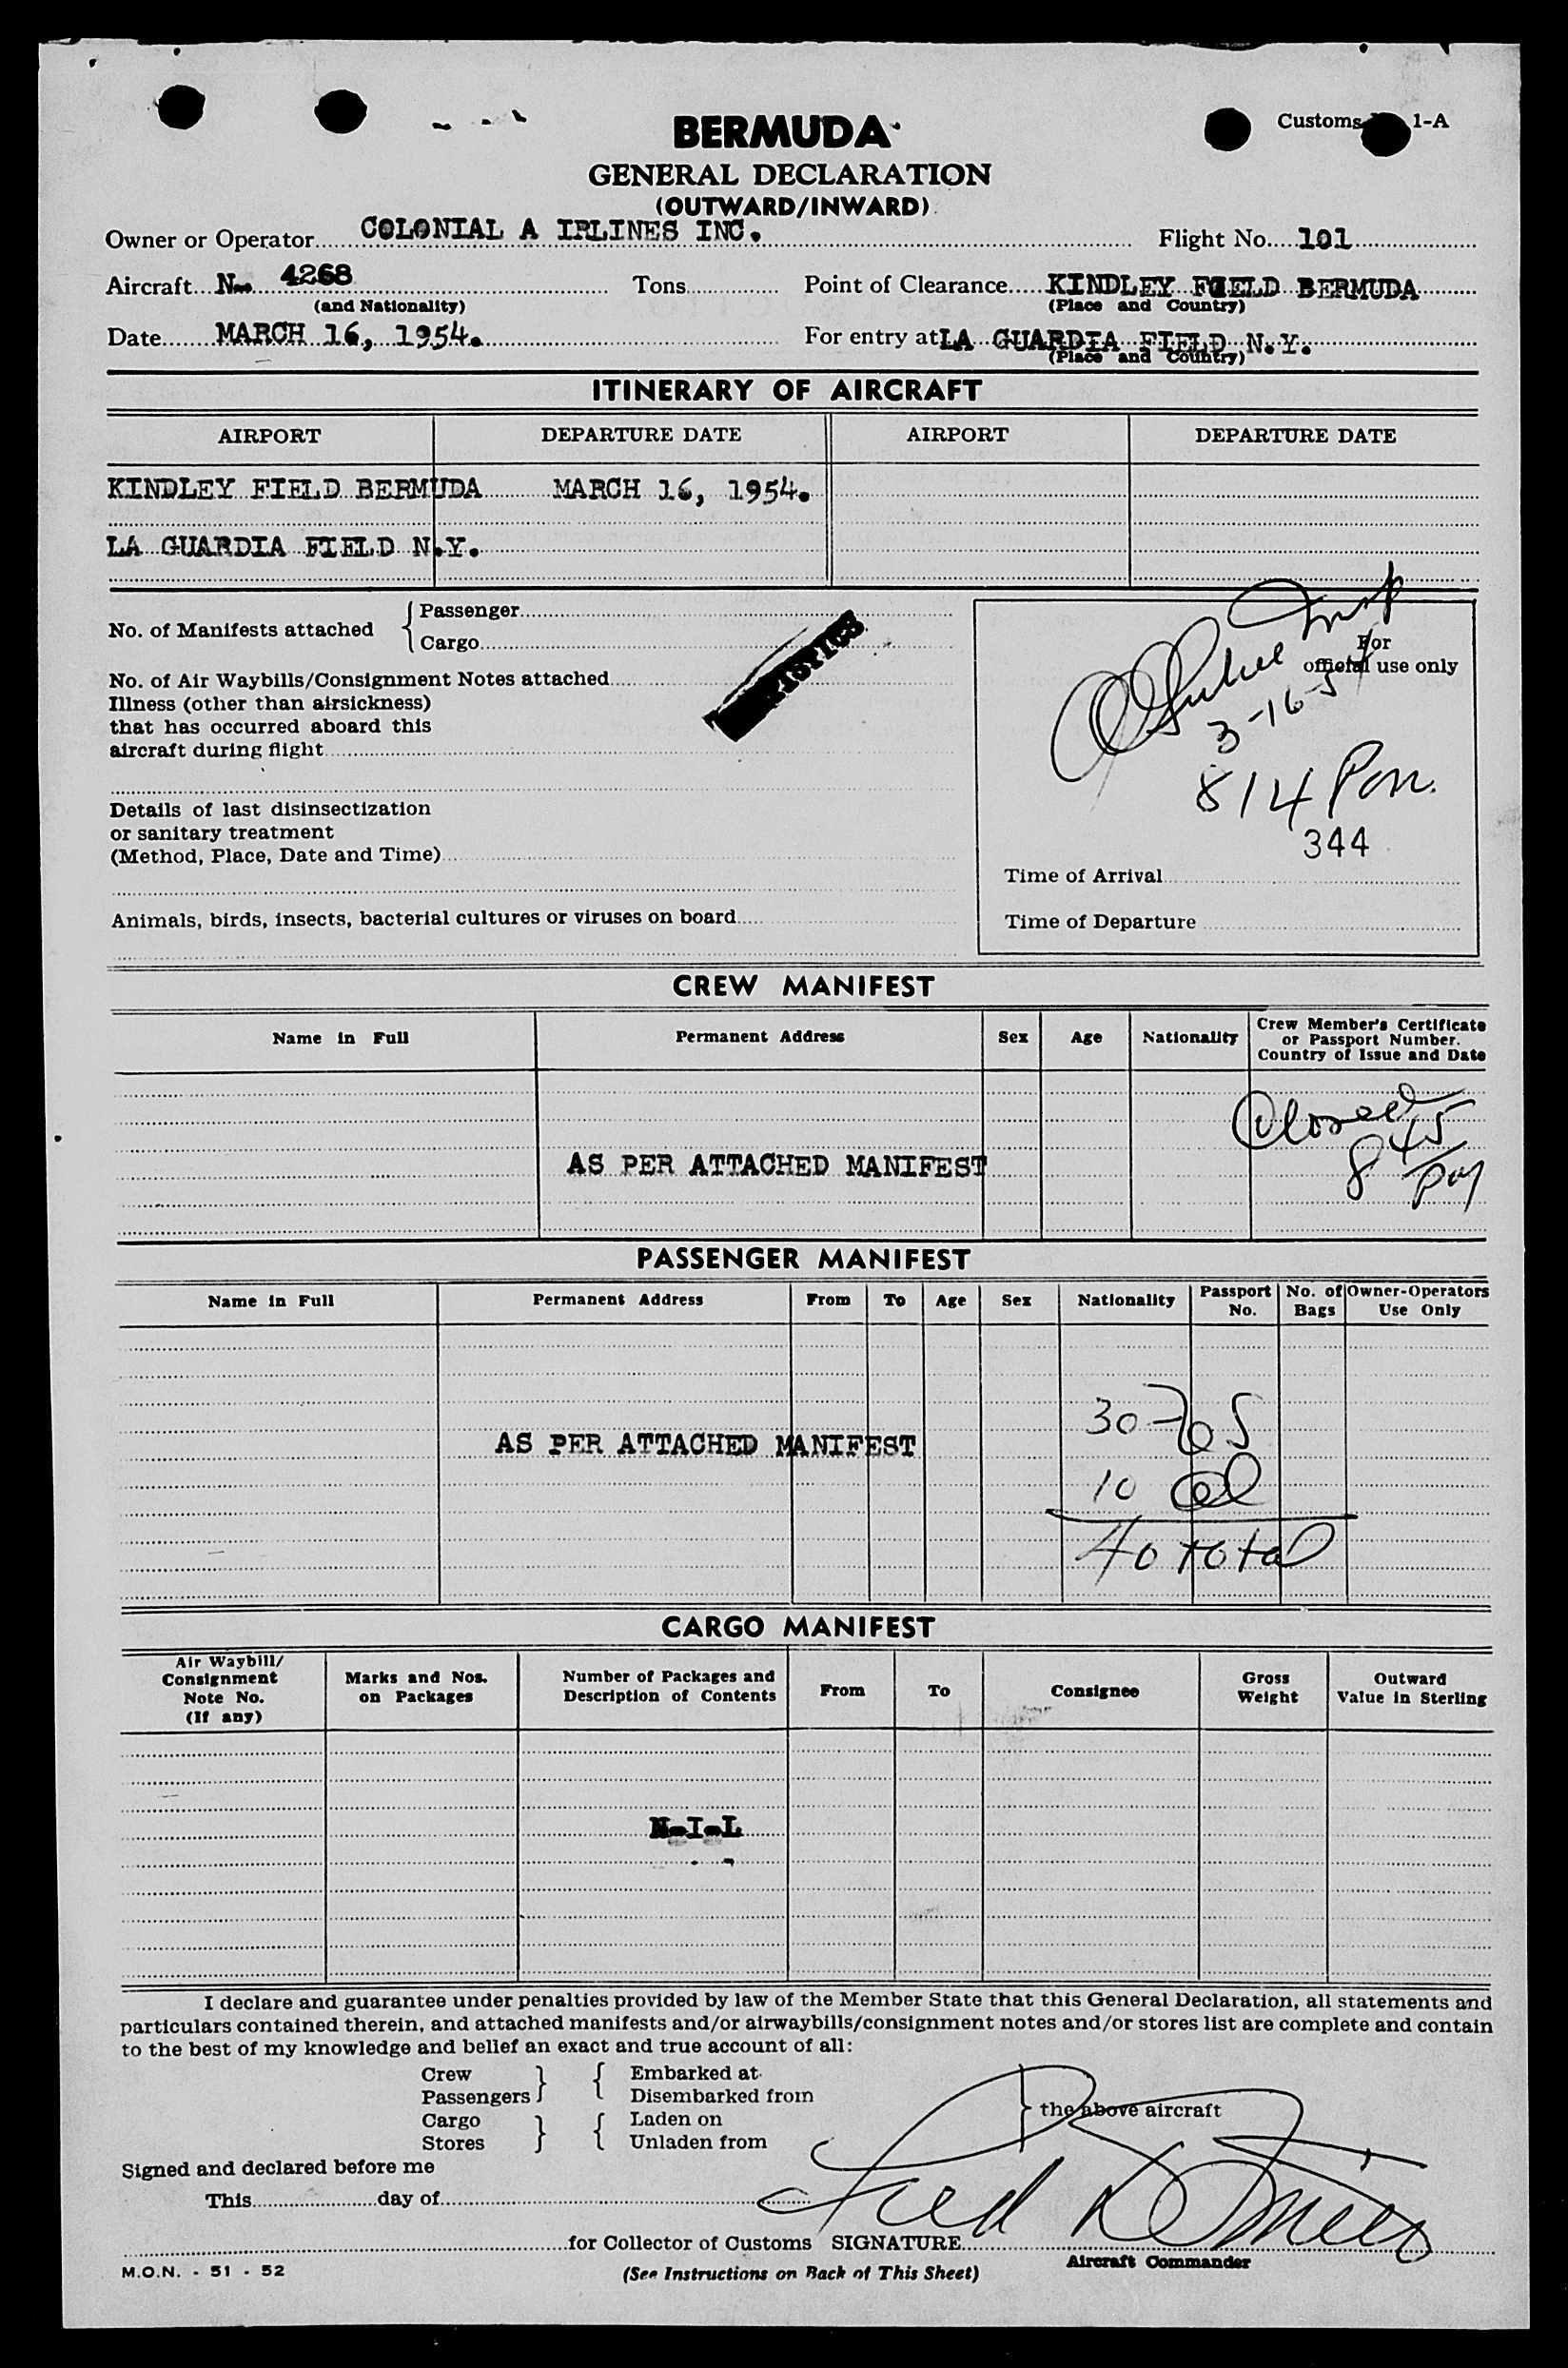 Customs 1-A
BERMUDA
GENERAL DECLARATION
(OUTWARD/INWARD)
Owner or Operator COLONIAL A IRLINES INC. Flight No. 101
Aircraft N 4268 Tons Point of Clearance KINDLEY FIELD BERMUDA
(and Nationality) (Place and Country)
Date MARCH 16, 1954. For entry at LA GUARDIA FIELD N.Y.
(Place and Country)
ITINERARY OF AIRCRAFT
AIRPORT DEPARTURE DATE AIRPORT DEPARTURE DATE
KINDLEY FIELD BERMUDA MARCH 16, 1954.
LA GUARDIA FIELD N.Y.
No. of Manifests attached { Passenger
Cargo
For
official use only
No. of Air Waybills/Consignment Notes attached
Illness (other than airsickness)
that has occurred aboard this
aircraft during flight
3-16-5
814 Pm.
344
Details of last disinsectization
or sanitary treatment
(Method, Place, Date and Time)
Time of Arrival
Animals, birds, insects, bacterial cultures or viruses on board
Time of Departure
CREW MANIFEST
Name in Full Permanent Address Sex Age Nationality Crew Member's Certificate
or Passport Number.
Country of Issue and Date
Closed
8 45
pm
AS PER ATTACHED MANIFEST
PASSENGER MANIFEST
Name in Full Permanent Address From To Age Sex Nationality Passport No. No. of Bags Owner-Operators Use Only
30
AS PER ATTACHED MANIFEST
10
40 total
CARGO MANIFEST
Air Waybill/
Consignment
Note No.
(If any)
Marks and Nos.
on Packages
Number of Packages and
Description of Contents
From To Consignee
Gross
Weight
Outward
Value in Sterling
N-I-L
I declare and guarantee under penalties provided by law of the Member State that this General Declaration, all statements and
particulars contained therein, and attached manifests and/or airwaybills/consignment notes and/or stores list are complete and contain
to the best of my knowledge and belief an exact and true account of all:
Crew } { Embarked at
Passengers Disembarked from
Cargo } { Laden on
Stores Unladen from
} the above aircraft
Signed and declared before me
This day of
Fred
for Collector of Customs SIGNATURE
Aircraft Commander
M.O.N. - 51 - 52 (See Instructions on Back of This Sheet)